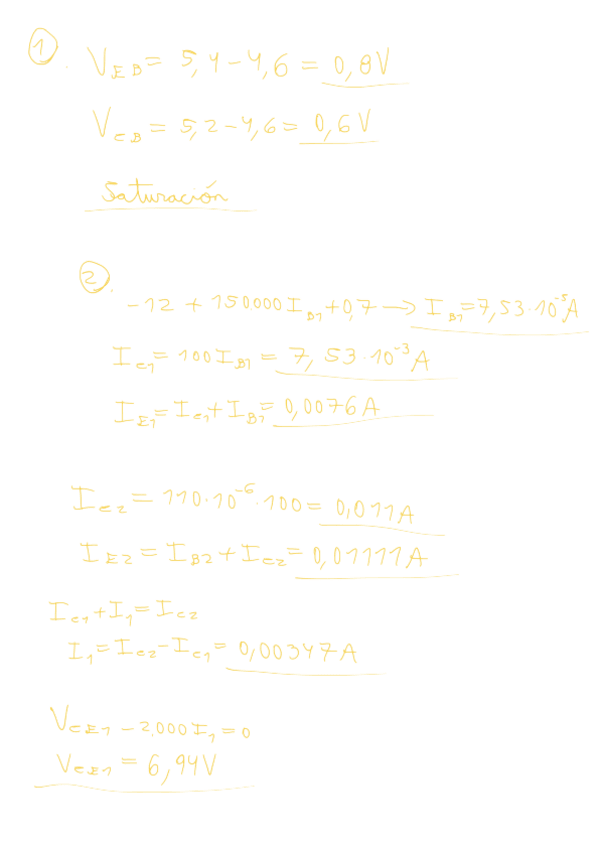 1
V_EB = 5,4 - 4,6 = 0,8V
V_CB = 5,2 - 4,6 = 0,6V
Saturación
2.
-12 + 150000 I_B1 + 0,7 → I_B1 = 7,53·10^-5 A
I_C1 = 100 I_B1 = 7,53·10^-3 A
I_E1 = I_C1 + I_B1 = 0,0076 A
I_C2 = 110·10^-6·100 = 0,011A
I_E2 = I_B2 + I_C2 = 0,01111A
I_C1 + I_1 = I_C2
I_1 = I_C2 - I_C1 = 0,00347A
V_CE1 - 2.000 I_1 = 0
V_CE1 = 6,94V